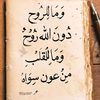 وَمَا لِلرُّوحِ
دُونَ اللهِ رُوحٌ
وَمَا لِلقَلْبِ
مِنْ عَونٍ سِوَاهُ